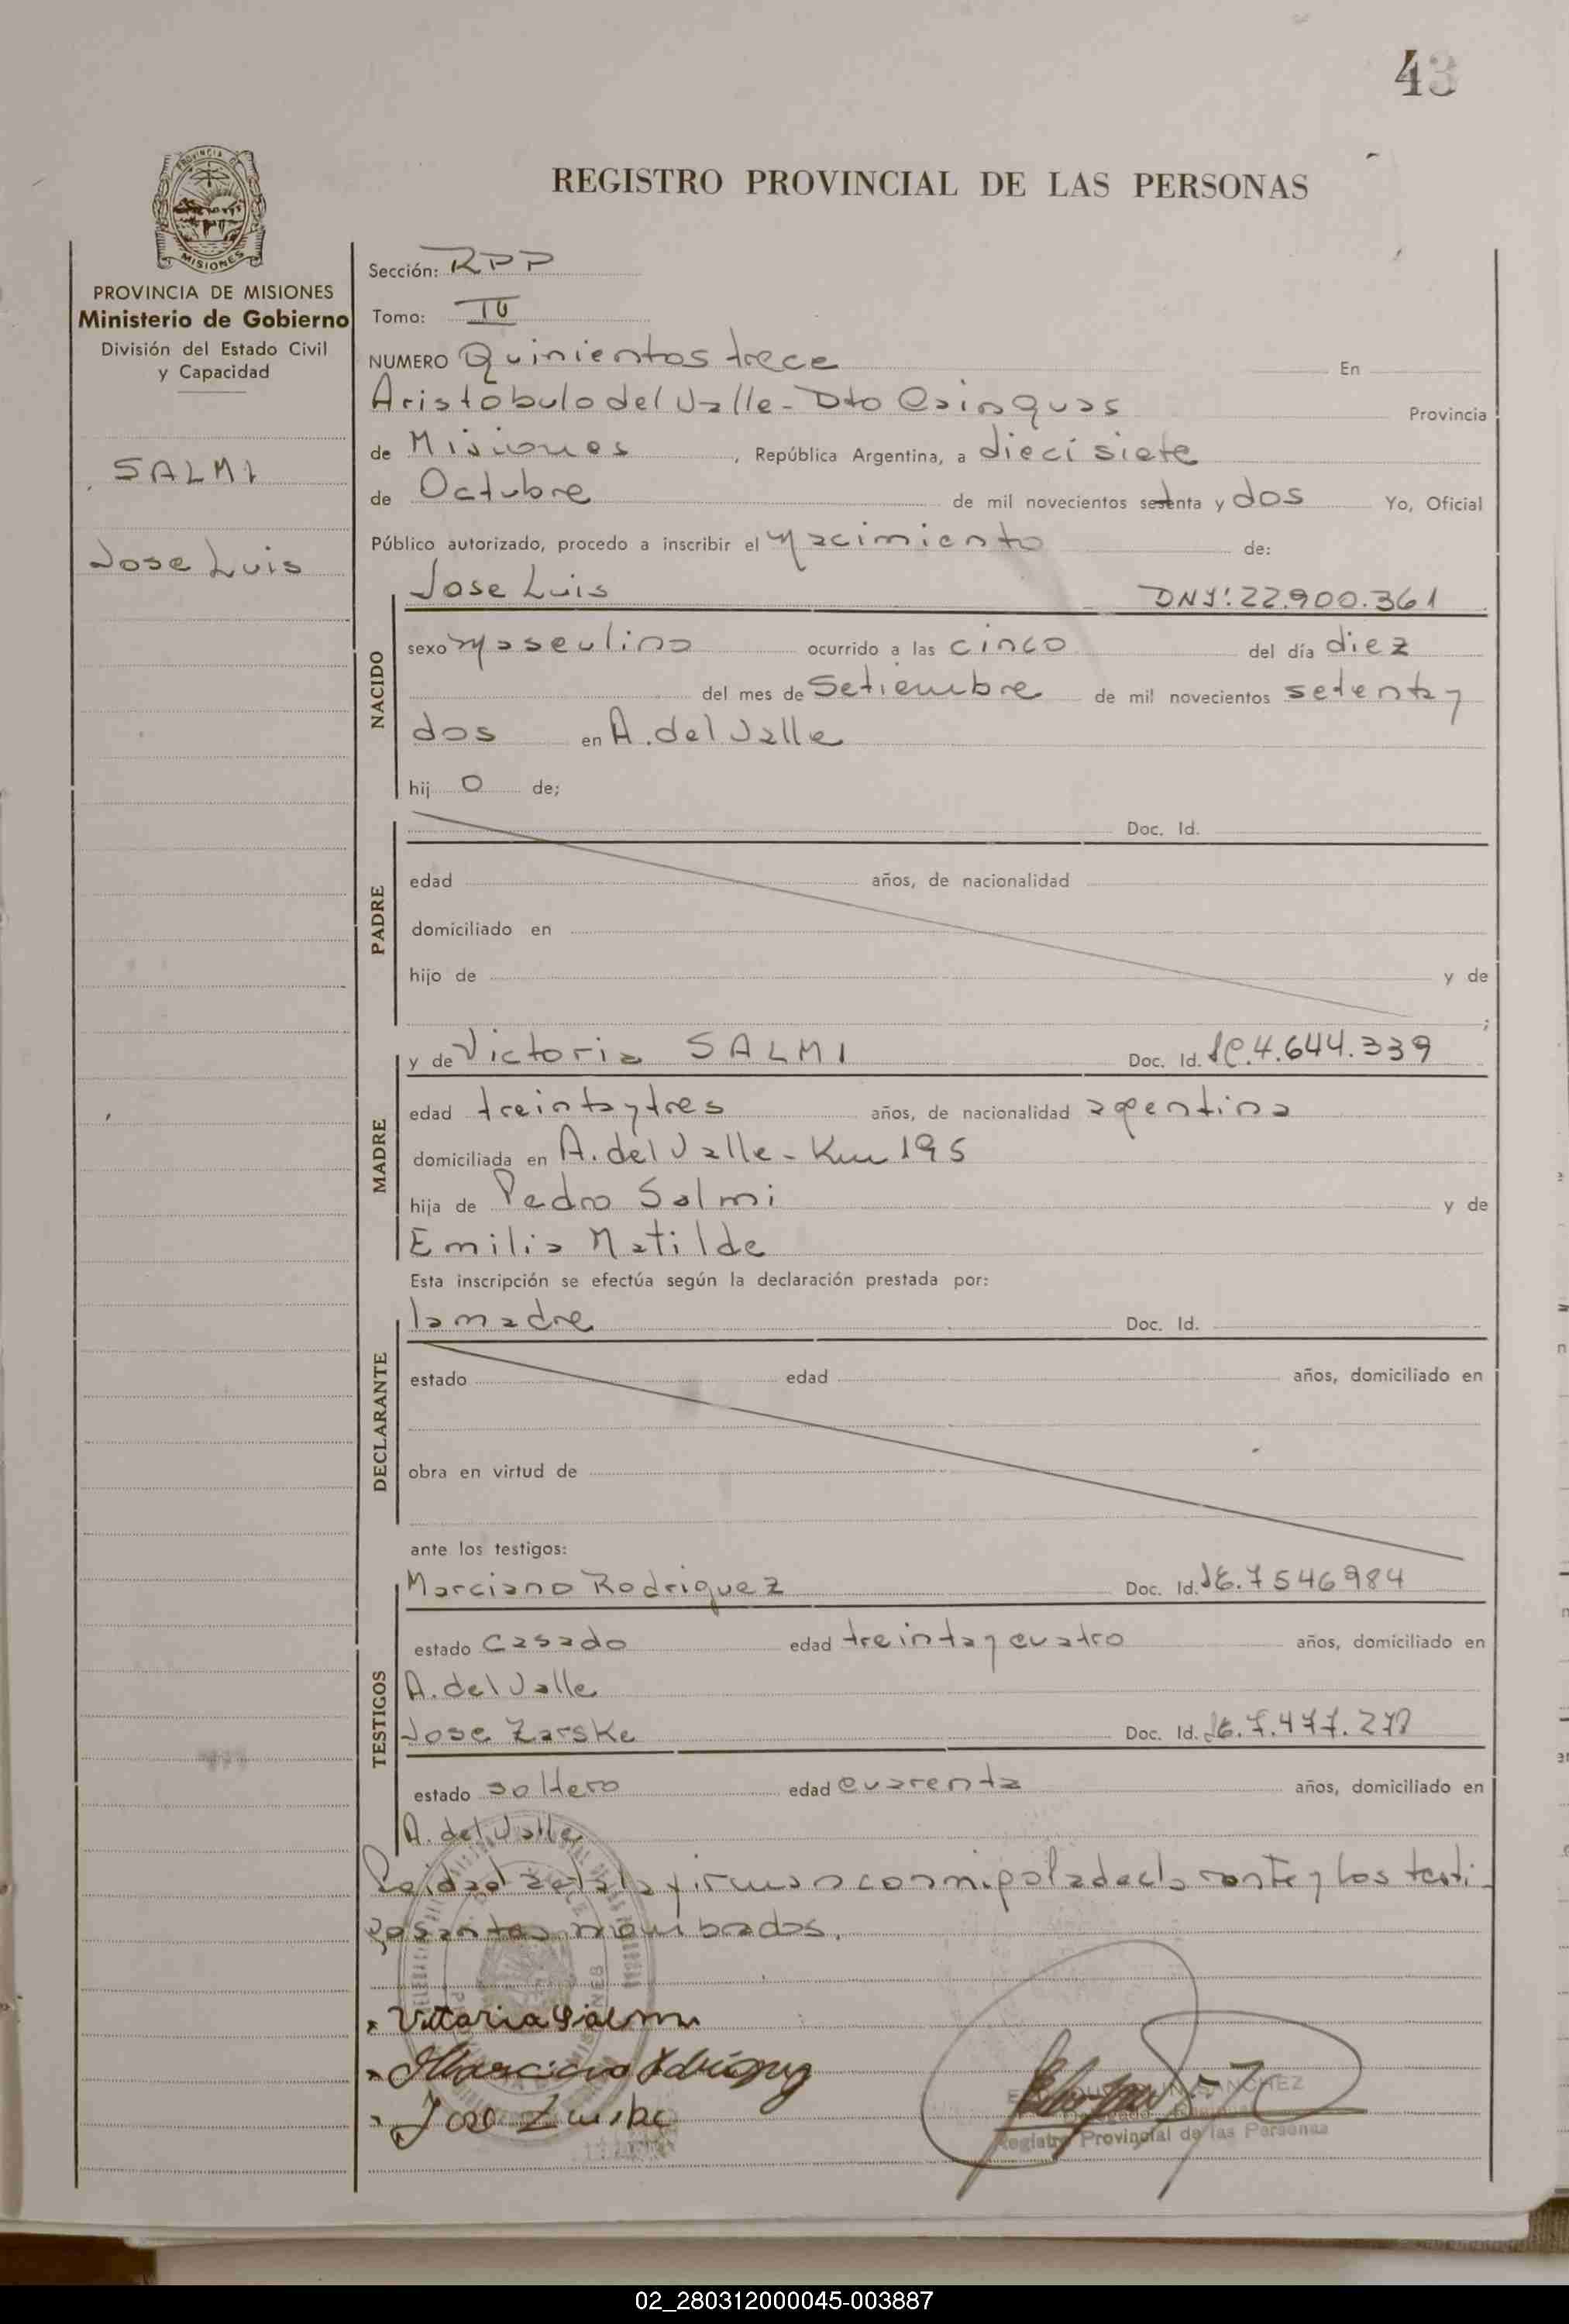 43
REGISTRO PROVINCIAL DE LAS PERSONAS
MISIONES
PROVINCIA DE MISIONES
Ministerio de Gobierno
División del Estado Civil
y Capacidad
SALMI
Jose Luis
Sección: RPP
Tomo:
NUMERO Quinientos trece En
Aristobulo del Valle - Dto Cainguas Provincia
de Misiones, República Argentina, a diecisiete
de Octubre de mil novecientos setenta y dos Yo, Oficial
Público autorizado, procedo a inscribir el Nacimiento de:
NACIDO
Jose Luis DNI: 22.900.361
sexo Masculino ocurrido a las cinco del día diez
del mes de Setiembre de mil novecientos setenta y
dos en A. del Valle
hij o de;
PADRE
Doc. Id.
edad años, de nacionalidad
domiciliado en
hijo de y de
;
MADRE
y de Victoria SALMI Doc. Id. 4.644.339
edad treinta y tres años, de nacionalidad agentina
domiciliada en A. del Valle - Km 195
hija de Pedro Salmi y de
Emilia Matilde
Esta inscripción se efectúa según la declaración prestada por:
DECLARANTE
la madre Doc. Id.
estado edad años, domiciliado en
obra en virtud de
ante los testigos:
TESTIGOS
Marciano Rodriguez Doc. Id. 7546984
estado casado edad treinta y cuatro años, domiciliado en
A. del Valle
Jose Zarske Doc. Id.
estado soltero edad cuarenta años, domiciliado en
A. del Valle
Leida el acta la firman conmigo la declarante y los testi
gos antes nombrados.
Vittoria Salmi
Marciano Rodriguez
Jose Zarske
SANCHEZ
Registro Provincial de las Personas
02_280312000045-003887